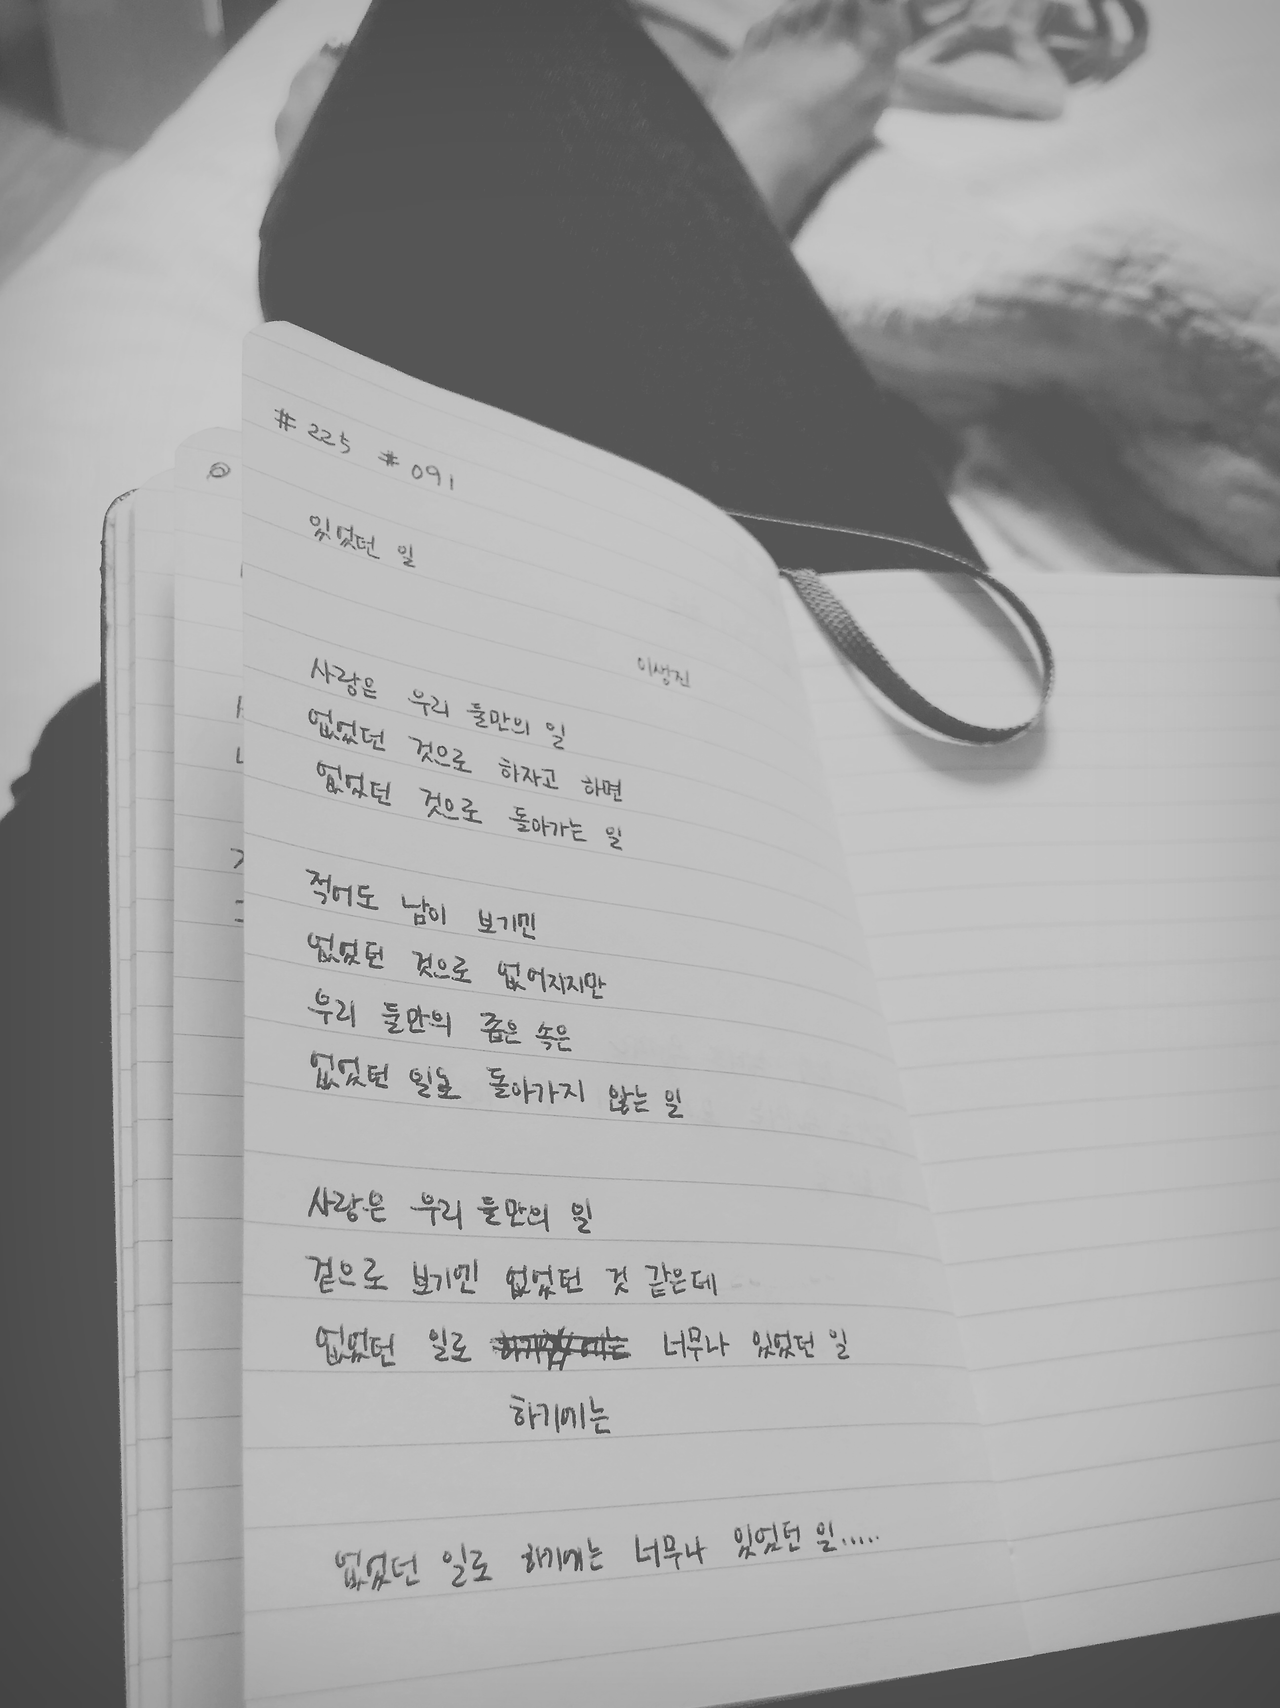 # 225 # 091
있었던 일
이생진
사랑은 우리 둘만의 일
없었던 것으로 하자고 하면
없었던 것으로 돌아가는 일
적어도 남이 보기엔
없었던 것으로 없어지지만
우리 둘만의 좁은 속은
없었던 일로 돌아가지 않는 일
사랑은 우리 둘만의 일
겉으로 보기엔 없었던 것 같은데
없었던 일로 너무나 있었던 일
하기에는
없었던 일로 하기에는 너무나 있었던 일.....